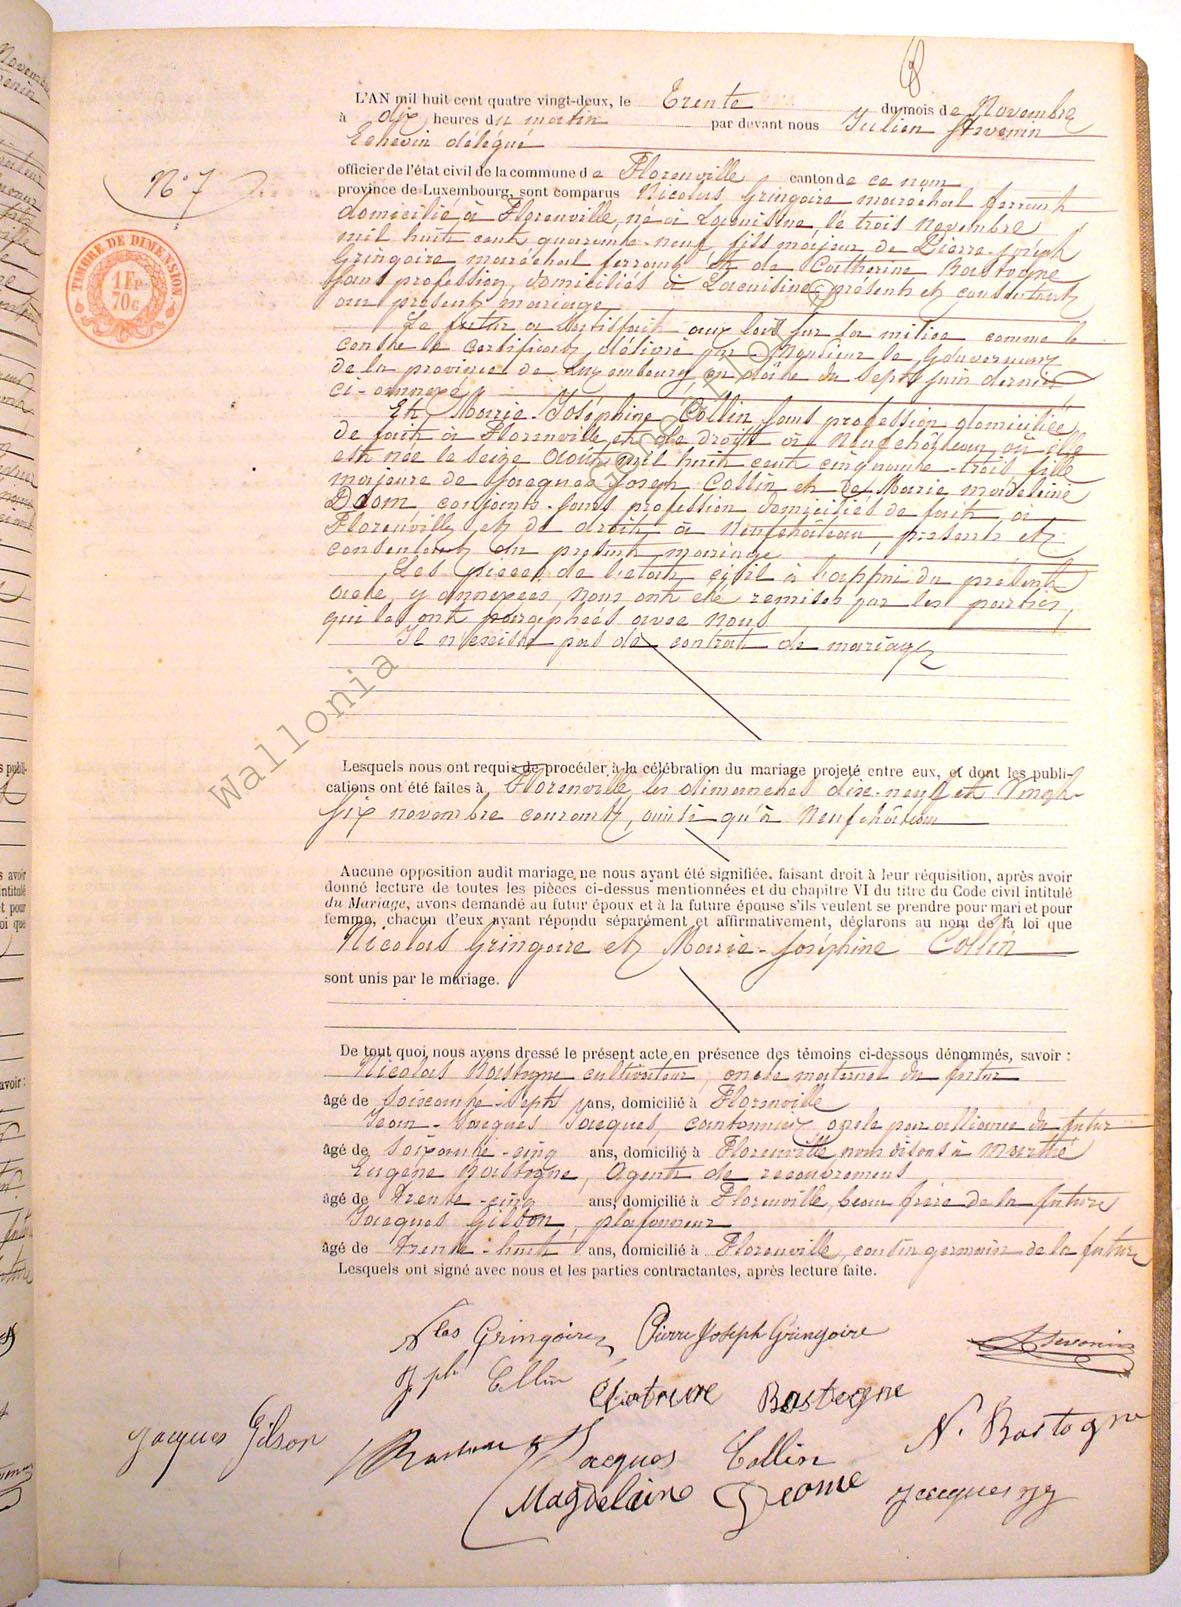 L'AN mil huit cent quatre vingt-deux, le Trente du mois de Novembre
à dix heures du matin par devant nous Julien
Echevin délégué
officier de l'état civil de la commune de Florenville canton de ce nom
province de Luxembourg, sont comparus Nicolas Gringoire maréchal ferrant
domicilié à Florenville, né à Lacuisine, le trois Novembre
mil huit cent quarante-neuf, fils majeur de Pierre-Joseph
Gringoire maréchal ferrant et de Catherine Bastogne
sans profession, domiciliés à Lacuisine, présents et consentant
au présent mariage
Le futur a satisfait aux lois sur la milice comme le
conste le certificat délivré par Monsieur le Gouverneur
de la province de Luxembourg en date du sept juin dernier
ci-annexé
Et Marie-Joséphine Collin sans profession domiciliée
de fait à Florenville et de droit à Neufchâteau, où elle
est née le seize Août mil huit cent cinquante-trois, fille
majeure de Jacques Joseph Collin et de Marie Madeleine
conjoints sans profession domiciliés de fait à
Florenville et de droit à Neufchâteau, présents et
consentant au présent mariage
Les pièces de l'état civil à l'appui du présent
acte, y annexées, nous ont été remises par les parties,
qui les ont paraphées avec nous
Il n'existe pas de contrat de mariage
Lesquels nous ont requis de procéder à la célébration du mariage projeté entre eux, et dont les publi-
cations ont été faites à Florenville les dimanches dix-neuf et Vingt-
six novembre courant, ainsi qu'à Neufchâteau
Aucune opposition audit mariage ne nous ayant été signifiée, faisant droit à leur réquisition, après avoir
donné lecture de toutes les pièces ci-dessus mentionnées et du chapitre VI du titre du Code civil intitulé
du Mariage, avons demandé au futur époux et à la future épouse s'ils veulent se prendre pour mari et pour
femme, chacun d'eux ayant répondu séparément et affirmativement, déclarons au nom de la loi que
Nicolas Gringoire et Marie-Joséphine Collin
sont unis par le mariage.
De tout quoi nous avons dressé le présent acte en présence des témoins ci-dessous dénommés, savoir :
Nicolas Bastogne cultivateur, oncle maternel du futur
âgé de soixante-sept ans, domicilié à Florenville
Jean-Jacques Jacques, cantonnier, oncle par alliance du futur
âgé de soixante-cinq ans, domicilié à Florenville, nous disons à
Eugène Bastogne, Agent de recouvrement
âgé de Trente-cinq ans, domicilié à Florenville, beau frère de la future
Jacques Gilson, plafonneur
âgé de Trente-huit ans, domicilié à Florenville, cousin germain de la future
Lesquels ont signé avec nous et les parties contractantes, après lecture faite.
Nlas Gringoire Pierre Joseph Gringoire
Jph Collin Catherine Bastogne
Jacques Gilson Jacques Collin N. Bastogne
Magdelaine Jacques
N° 7
TIMBRE DE DIMENSION.
1 FR.
70 C
Wallonia